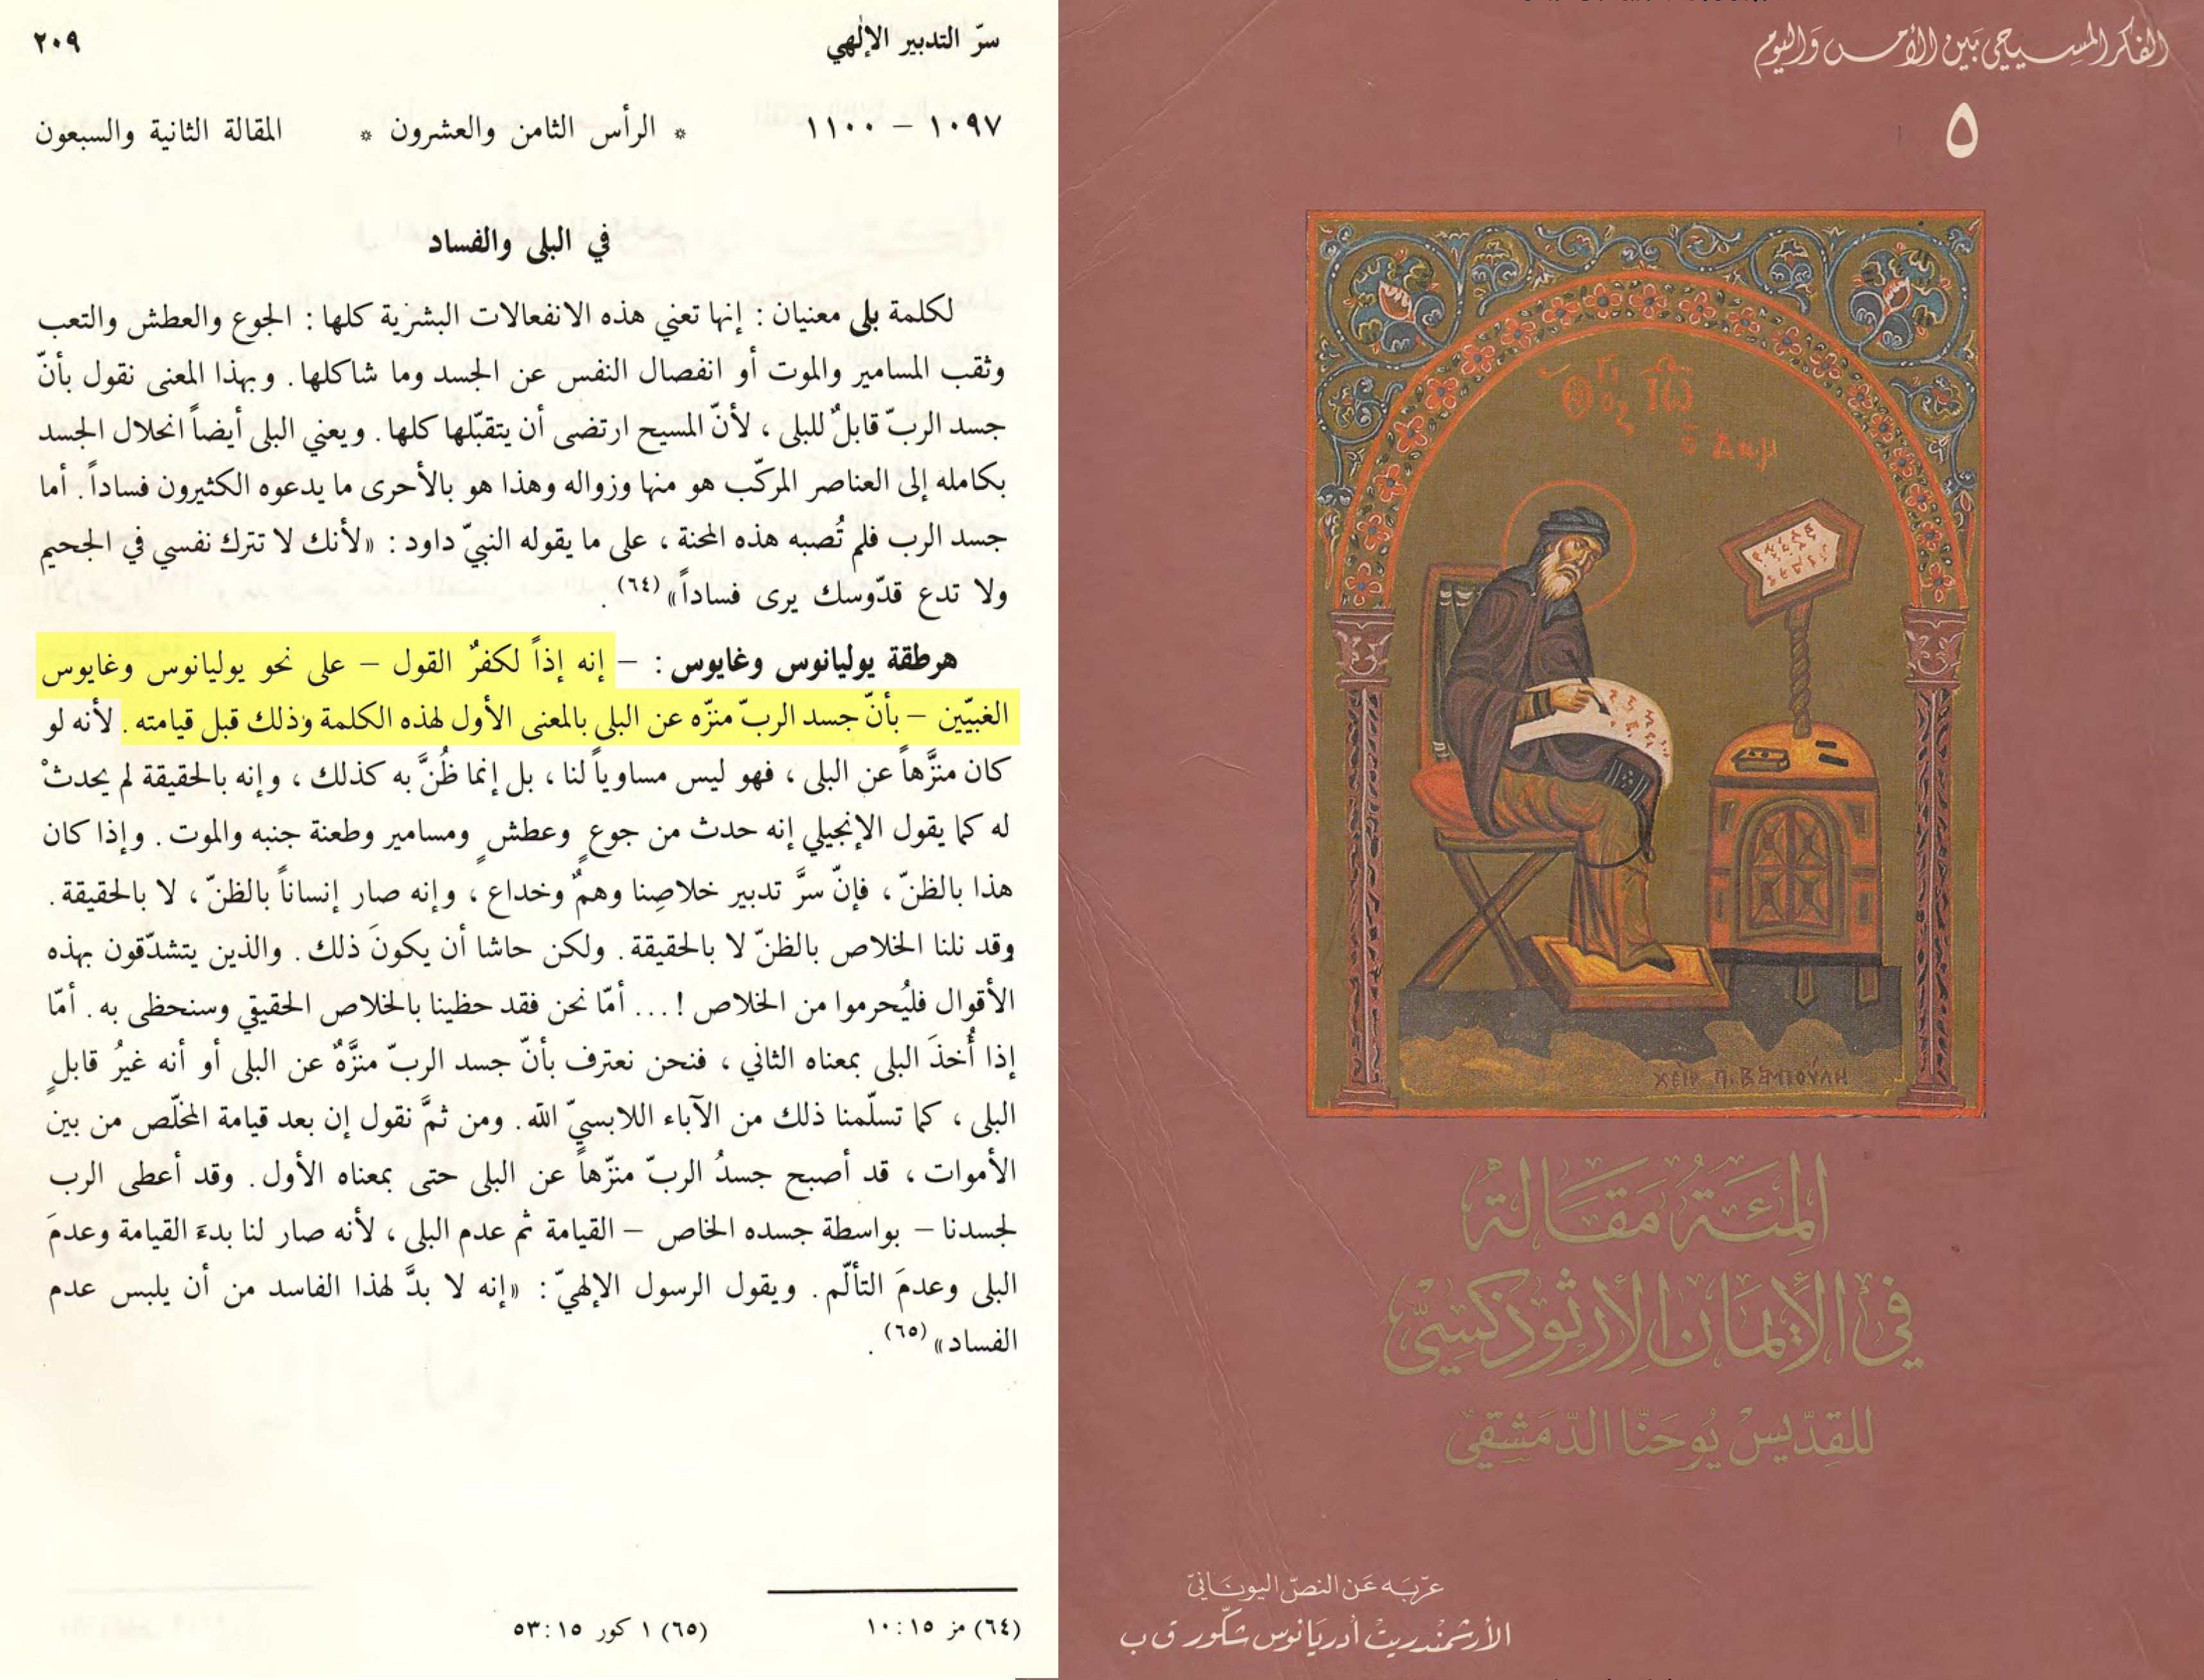 سرّ التدبير الإلٰهي ٢٠٩
١٠٩٧ – ١١٠٠ * الرأس الثامن والعشرون * المقالة الثانية والسبعون
في البلى والفساد
لكلمة بلى معنيان : إنها تعني هذه الانفعالات البشرية كلها : الجوع والعطش والتعب
وثقب المسامير والموت أو انفصال النفس عن الجسد وما شاكلها . وبهذا المعنى نقول بأنّ
جسد الربّ قابلٌ للبلى ، لأنّ المسيح ارتضى أن يتقبّلها كلها . ويعني البلى أيضاً انحلال الجسد
بكامله إلى العناصر المركّب هو منها وزواله وهذا هو بالأحرى ما يدعوه الكثيرون فساداً . أما
جسد الرب فلم تُصبه هذه المحنة ، على ما يقوله النبيّ داود : «لأنك لا تترك نفسي في الجحيم
ولا تدع قدّوسك يرى فساداً» (٦٤) .
هرطقة يوليانوس وغايوس : – إنه إذاً لكفرٌ القول – على نحو يوليانوس وغايوس
الغبيّين – بأنّ جسد الربّ منزّه عن البلى بالمعنى الأول لهذه الكلمة وذلك قبل قيامته . لأنه لو
كان منزَّهاً عن البلى ، فهو ليس مساوياً لنا ، بل إنما ظُنَّ به كذلك ، وإنه بالحقيقة لم يحدثْ
له كما يقول الإنجيلي إنه حدث من جوعٍ وعطشٍ ومسامير وطعنة جنبه والموت . وإذا كان
هذا بالظنّ ، فإنّ سرَّ تدبير خلاصِنا وهمٌ وخداع ، وإنه صار إنساناً بالظنّ ، لا بالحقيقة .
وقد نلنا الخلاص بالظنّ لا بالحقيقة . ولكن حاشا أن يكونَ ذلك . والذين يتشدّقون بهذه
الأقوال فليُحرموا من الخلاص !... أمّا نحن فقد حظينا بالخلاص الحقيقي وسنحظى به . أمّا
إذا أُخذَ البلى بمعناه الثاني ، فنحن نعترف بأنّ جسد الربّ منزَّهٌ عن البلى أو أنه غيرُ قابلٍ
البلى ، كما تسلّمنا ذلك من الآباء اللابسيّ الله . ومن ثمَّ نقول إن بعد قيامة المخلّص من بين
الأموات ، قد أصبح جسدُ الربّ منزّهاً عن البلى حتى بمعناه الأول . وقد أعطى الرب
لجسدنا – بواسطة جسده الخاص – القيامة ثم عدم البلى ، لأنه صار لنا بدءَ القيامة وعدمَ
البلى وعدمَ التألّم . ويقول الرسول الإلهيّ : «إنه لا بدَّ لهذا الفاسد من أن يلبس عدم
الفساد» (٦٥) .
(٦٤) مز ١٥ : ١٠ (٦٥) ١ كور ١٥ : ٥٣
الفكر المسيحي بين الأمس واليوم
٥
ΧΕΙΡ Π. ΒΑΜΠΟΥΛΗ
المِئَة مَقَالَة
في الإيمَان الأرثوذكسِيّ
للقدّيس يُوحَنّا الدّمَشقي
عرّبَه عَن النصّ اليونَانيّ
الأرشمندريت أدريَانوس شكّور ق ب